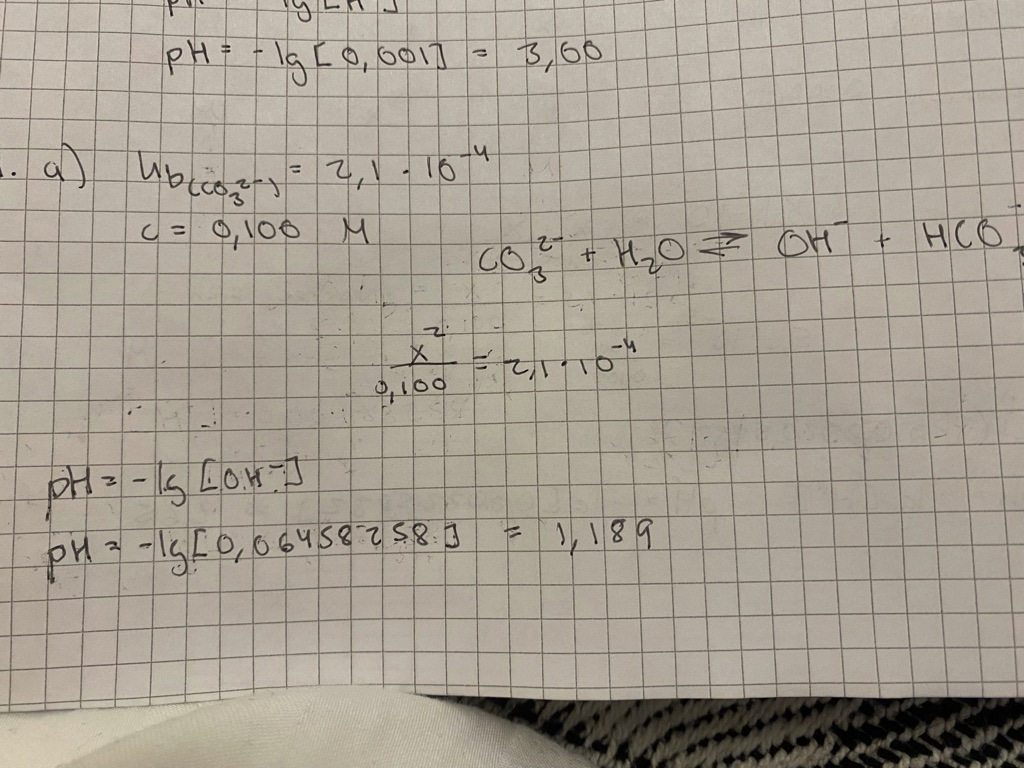 pH = -lg [0,001] = 3,00
a) Kb(CO₃²⁻) = 2,1 · 10⁻⁴
c = 0,100 M
CO₃²⁻ + H₂O ⇌ OH⁻ + HCO₃⁻
x²/0,100 = 2,1 · 10⁻⁴
pH = -lg [OH⁻]
pH = -lg[0,06458258] = 1,189